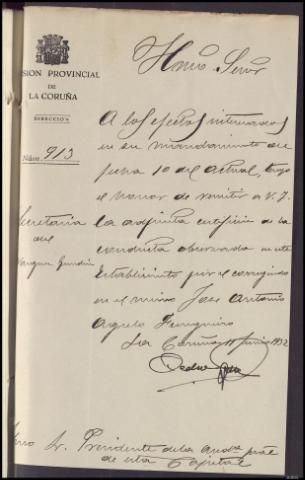 SION PROVINCIAL
DE
LA CORUÑA
DIRECCION
Núm. 913
Secretaria
del
Ilmo Señor
A los efectos interesados
en su mandamiento de
fecha 10 del actual, tengo
el honor de remitir a V. I.
la adjunta certificón de la
conducta observada en este
Establecimiento por el corrigendo
en el mismo José Antonio
Agrelo
La Coruña 11 Junio 1932
Sr. Presidente de la Audª pral
de esta Capital